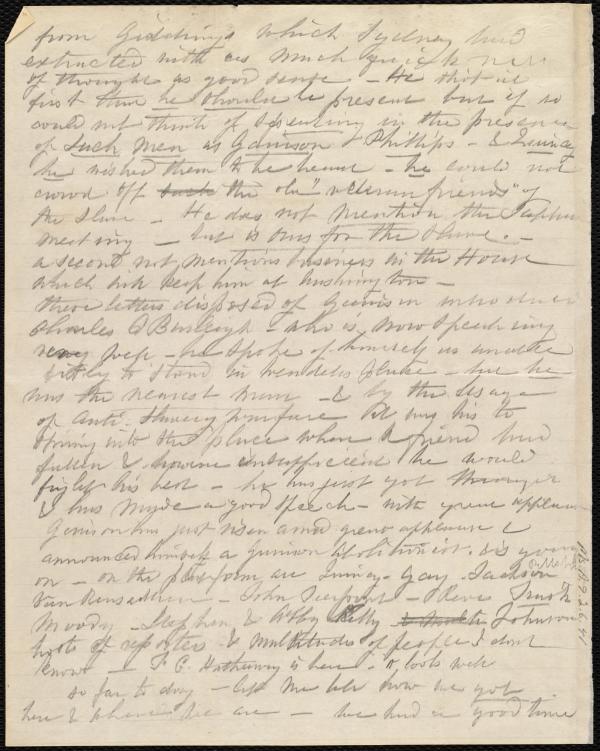 from Giddings which Sydney had
extracted with as much quick ness
of thought as good sense - He
first that he should be present but if so
could not think of speaking in the presence
of Such men as Garrison & Phillips - & Quincy
he wished them to be heard - he could not
crowd off the old "veteran friends" of
the Slave - He does not mention the
meeting - but is ours for the Slave. -
a second not mentions business in the House
which will keep him at Washington -
these letters disposed of Garrison introduced
Charles C Burleigh - who is now speech ing
very well - he spoke of himself as unable
fitly to stand in wendells place - but he
was the nearest man - & by the usage
of Anti-Slavery warfare it was his to
spring into the place where a friend had
fallen & however insufficient he would
fight his best - he has just got through
& has made a good speech - with great applause
Garrison has just risen amid great applause &
announced himself a Garrison Abolitionist. & is going
on - on the platform are Quincy - Gay - Jackson
Van Rensselaer - John Pierpont -
Moody - Stephen & Abby Kelly Johnson
hosts of reporters & multitudes of people I dont
know - J C. Hathaway is here - & looks well
so far to day - let me tell how we got
here & where we are - we had a good time